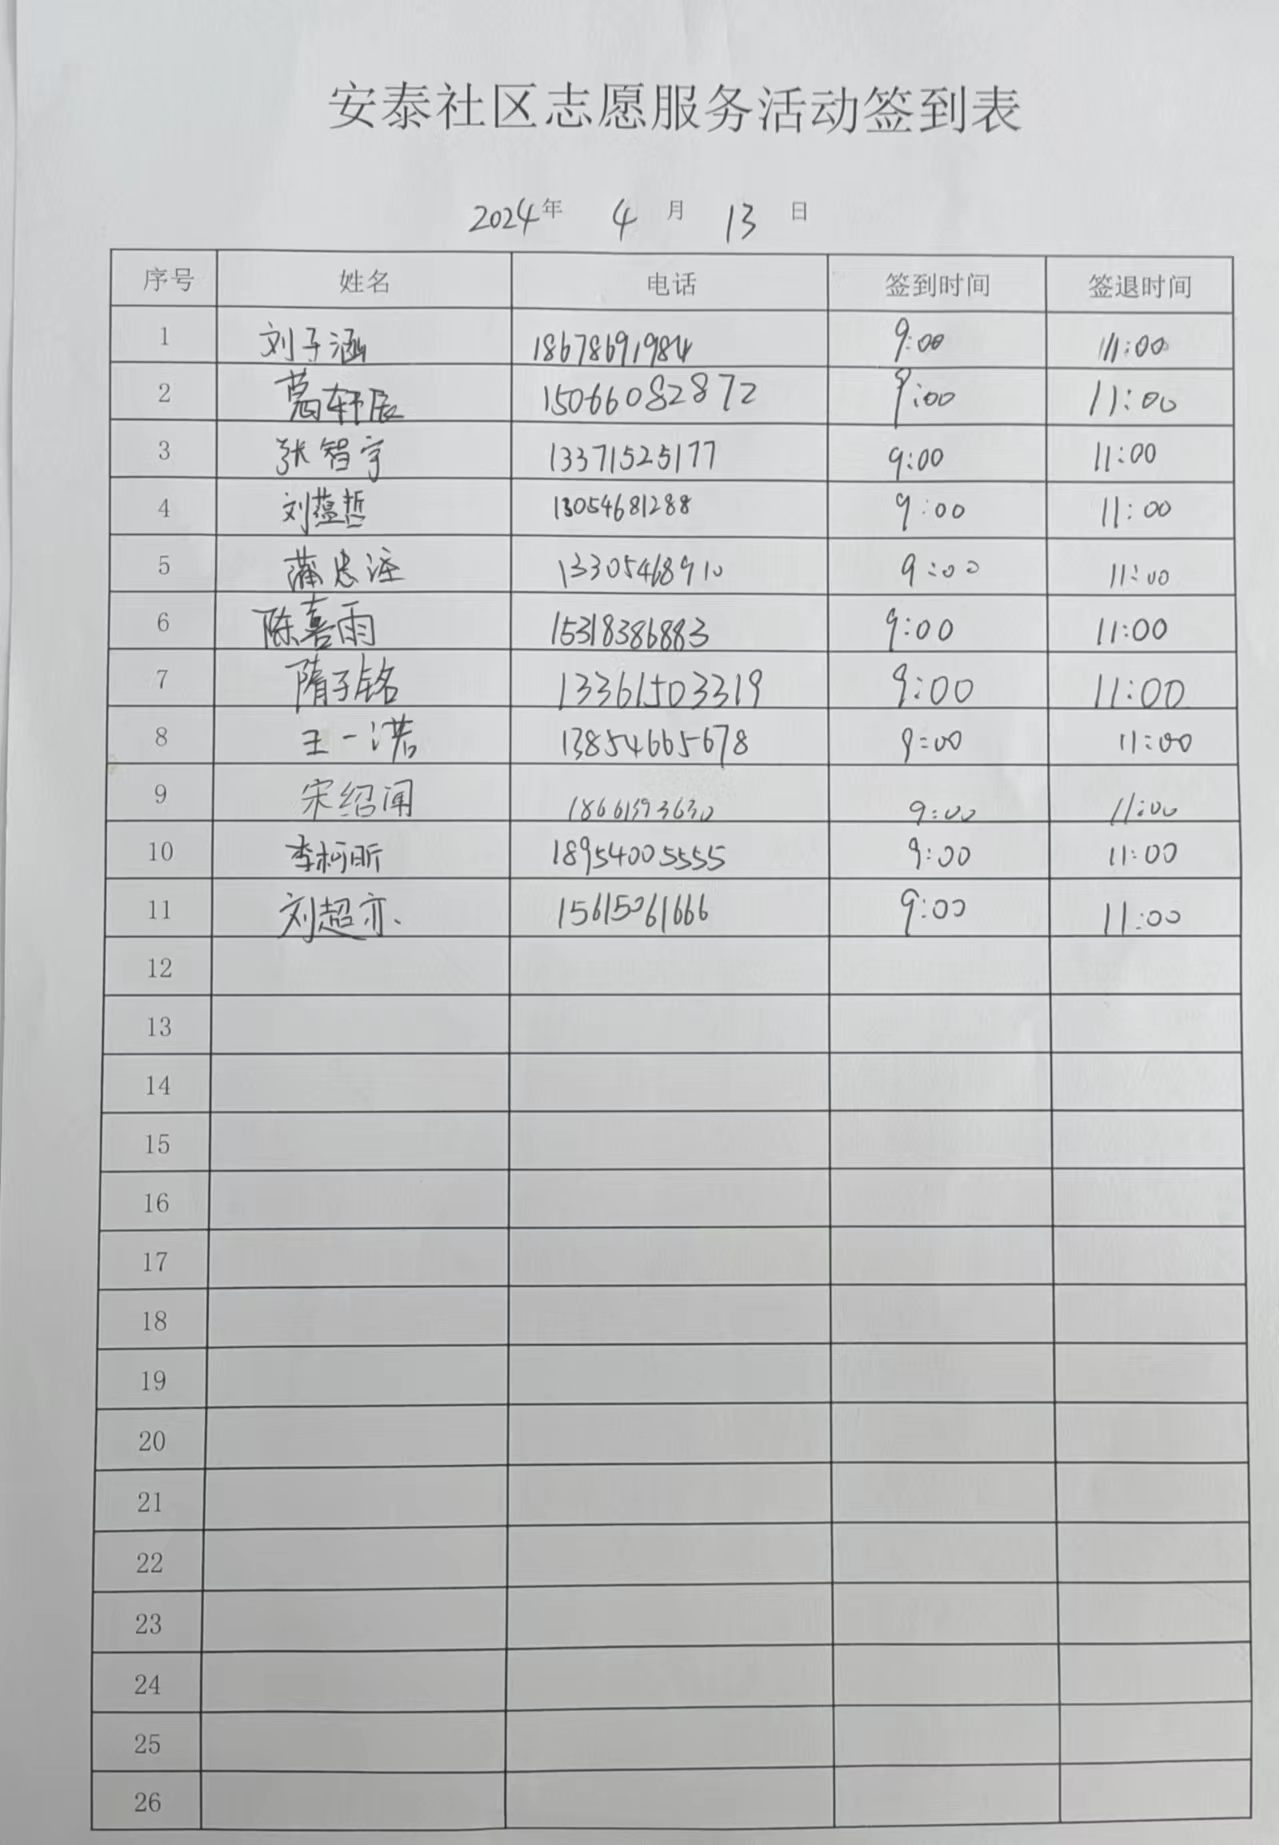 安泰社区志愿服务活动签到表
2024年 4月 13日
序号 姓名 电话 签到时间 签退时间
1 刘子涵 18678691984 9:00 11:00
2 葛轩辰 15066082872 9:00 11:00
3 张智宇 13371525177 9:00 11:00
4 刘蕴哲 13054681288 9:00 11:00
5 蒲忠 13305468910 9:00 11:00
6 陈喜雨 15318386883 9:00 11:00
7 隋子铭 13361503319 9:00 11:00
8 王一诺 13854665678 9:00 11:00
9 宋绍闻 18661393630 9:00 11:00
10 李柯昕 18954005555 9:00 11:00
11 刘超亦 15615061666 9:00 11:00
12
13
14
15
16
17
18
19
20
21
22
23
24
25
26